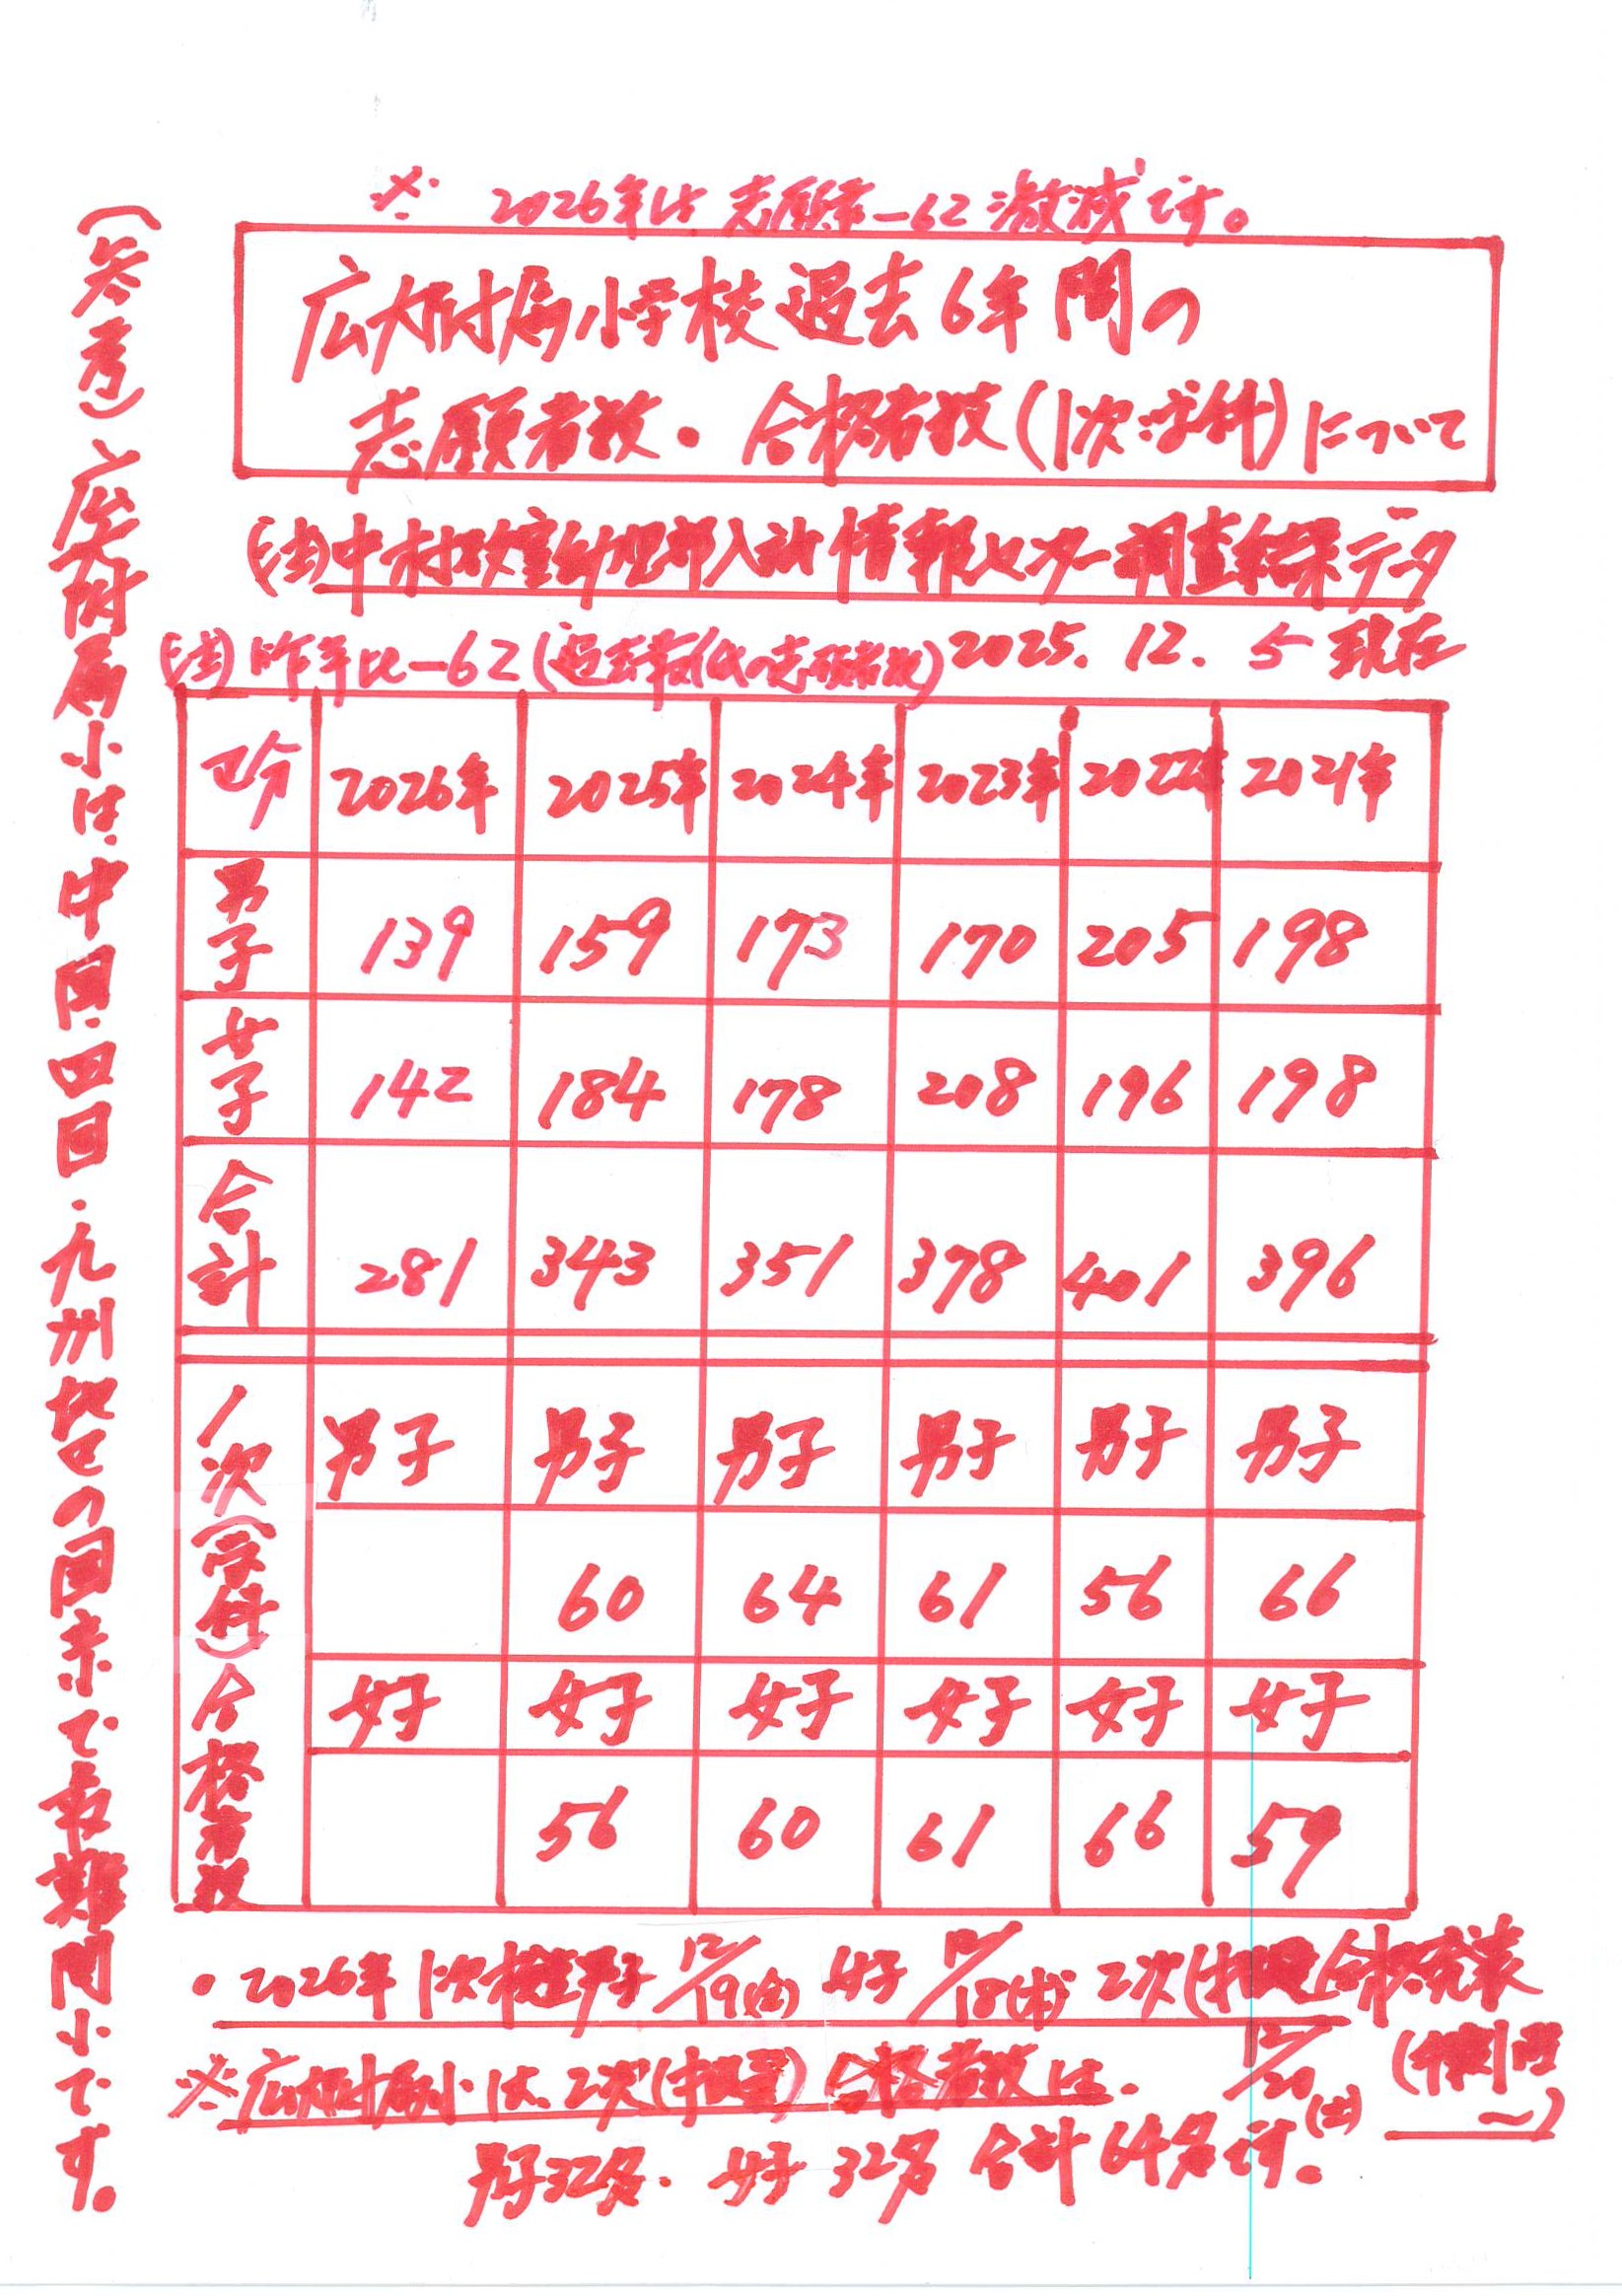 ※ 2026年は志願者-62激減です。
広大附属小学校過去6年間の
志願者数・合格者数(1次・学科)について
(注)中村教室幼児部入試情報センター調査結果データ
(注)昨年比-62(過去最低の志願者数)2025.12.5現在
区分 2026年 2025年 2024年 2023年 2022年 2021年
男子 139 159 173 170 205 198
女子 142 184 178 208 196 198
合計 281 343 351 378 401 396
1次(学科)合格者数
男子 男子 男子 男子 男子 男子
60 64 61 56 66
女子 女子 女子 女子 女子 女子
56 60 61 66 59
・2026年1次検査男子12/19(金) 女子12/18(木) 2次(抽選)合格発表
12/20(土)
※広大附属小は、2次(抽選)合格者数は、
男子32名、女子32名 合計64名です。
(参考)広大附属小は、中国・四国・九州地区の国立で最難関小です。